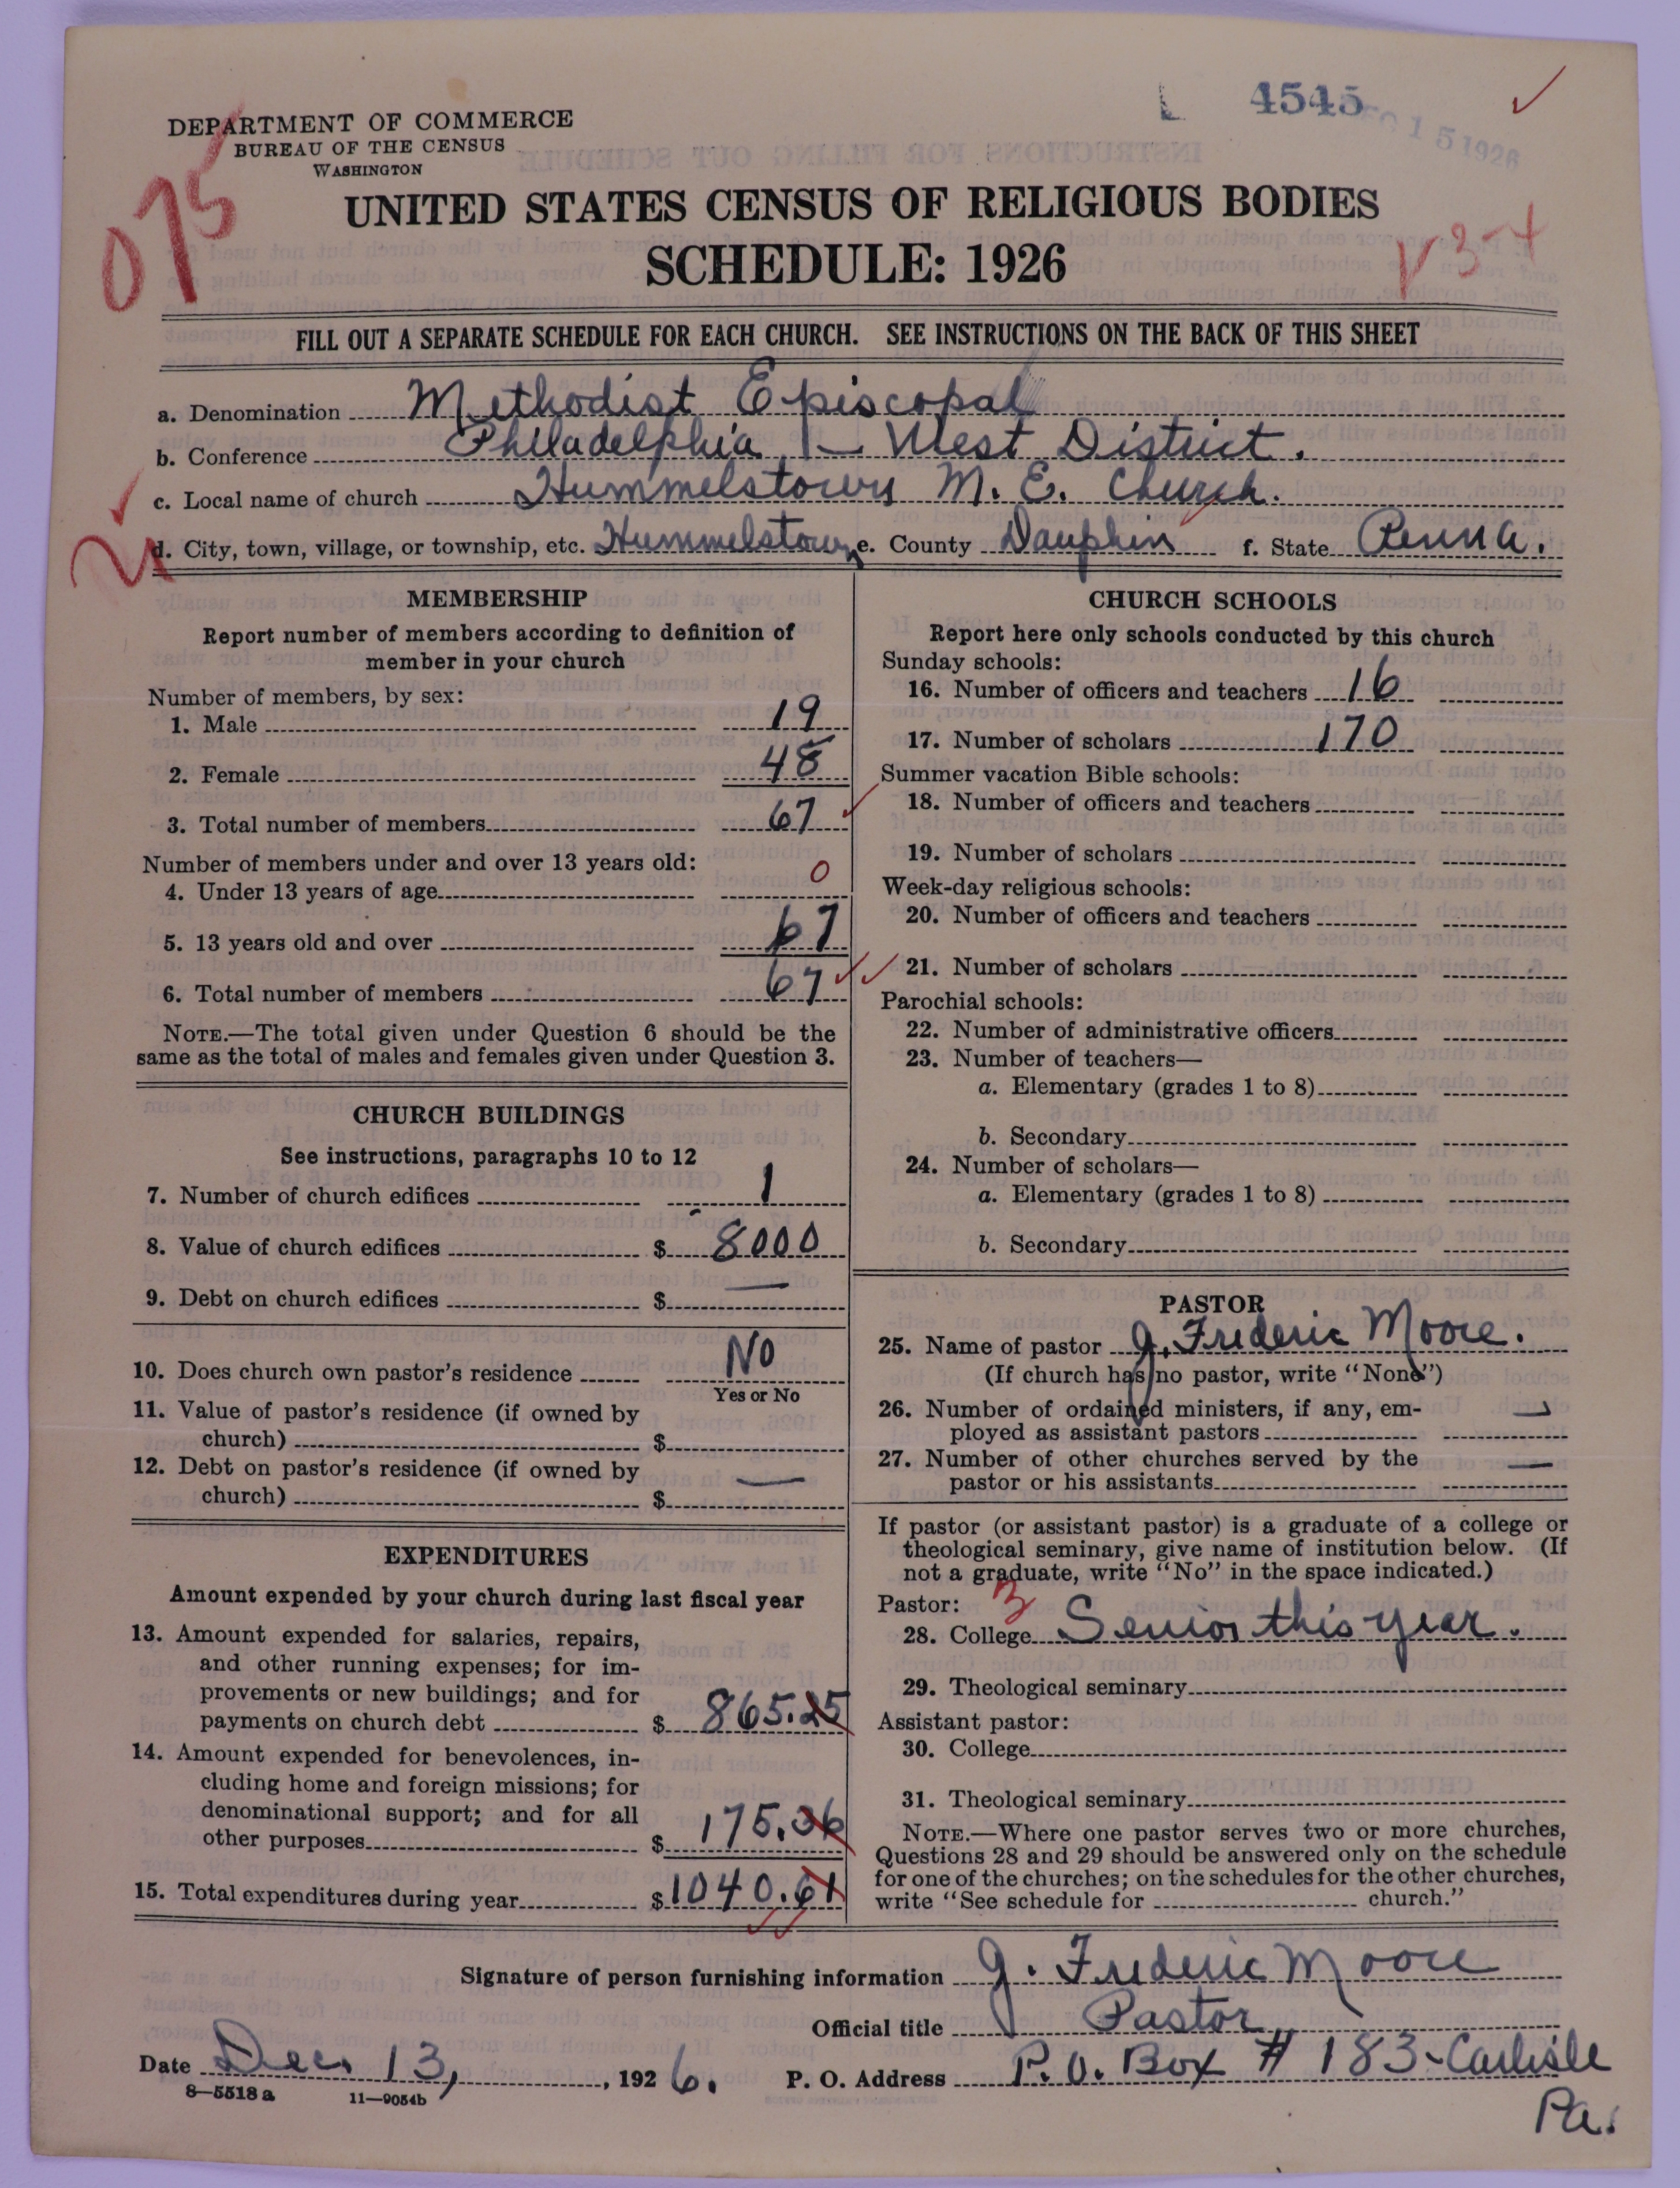 4545
DEC 15 1926
DEPARTMENT OF COMMERCE
BUREAU OF THE CENSUS
WASHINGTON
075
UNITED STATES CENSUS OF RELIGIOUS BODIES
SCHEDULE: 1926
V 3-4
FILL OUT A SEPARATE SCHEDULE FOR EACH CHURCH. SEE INSTRUCTIONS ON THE BACK OF THIS SHEET
a. Denomination Methodist Episcopal
b. Conference Philadelphia - West District.
c. Local name of church Hummelstown M. E. Church.
d. City, town, village, or township, etc. Hummelstown e. County Dauphin f. State Penna.
MEMBERSHIP
Report number of members according to definition of
member in your church
Number of members, by sex:
1. Male 19
2. Female 48
3. Total number of members 67
Number of members under and over 13 years old:
4. Under 13 years of age 0
5. 13 years old and over 67
6. Total number of members 67
NOTE.—The total given under Question 6 should be the
same as the total of males and females given under Question 3.
CHURCH BUILDINGS
See instructions, paragraphs 10 to 12
7. Number of church edifices 1
8. Value of church edifices $ 8000
9. Debt on church edifices $ —
10. Does church own pastor's residence No
Yes or No
11. Value of pastor's residence (if owned by
church) $
12. Debt on pastor's residence (if owned by
church) $ —
EXPENDITURES
Amount expended by your church during last fiscal year
13. Amount expended for salaries, repairs,
and other running expenses; for im-
provements or new buildings; and for
payments on church debt $ 865.25
14. Amount expended for benevolences, in-
cluding home and foreign missions; for
denominational support; and for all
other purposes $ 175.36
15. Total expenditures during year $ 1040.61
CHURCH SCHOOLS
Report here only schools conducted by this church
Sunday schools:
16. Number of officers and teachers 16
17. Number of scholars 170
Summer vacation Bible schools:
18. Number of officers and teachers
19. Number of scholars
Week-day religious schools:
20. Number of officers and teachers
21. Number of scholars
Parochial schools:
22. Number of administrative officers
23. Number of teachers—
a. Elementary (grades 1 to 8)
b. Secondary
24. Number of scholars—
a. Elementary (grades 1 to 8)
b. Secondary
PASTOR
25. Name of pastor J. Frederic Moore.
(If church has no pastor, write "None")
26. Number of ordained ministers, if any, em-
ployed as assistant pastors —
27. Number of other churches served by the
pastor or his assistants —
If pastor (or assistant pastor) is a graduate of a college or
theological seminary, give name of institution below. (If
not a graduate, write "No" in the space indicated.)
Pastor: 3
28. College Senior this year.
29. Theological seminary
Assistant pastor:
30. College
31. Theological seminary
NOTE.—Where one pastor serves two or more churches,
Questions 28 and 29 should be answered only on the schedule
for one of the churches; on the schedules for the other churches,
write "See schedule for church."
Signature of person furnishing information J. Frederic Moore
Official title Pastor
Date Dec. 13, 1926. P. O. Address P.O. Box # 183-Carlisle
Pa.
8—5518 a 11—9054b